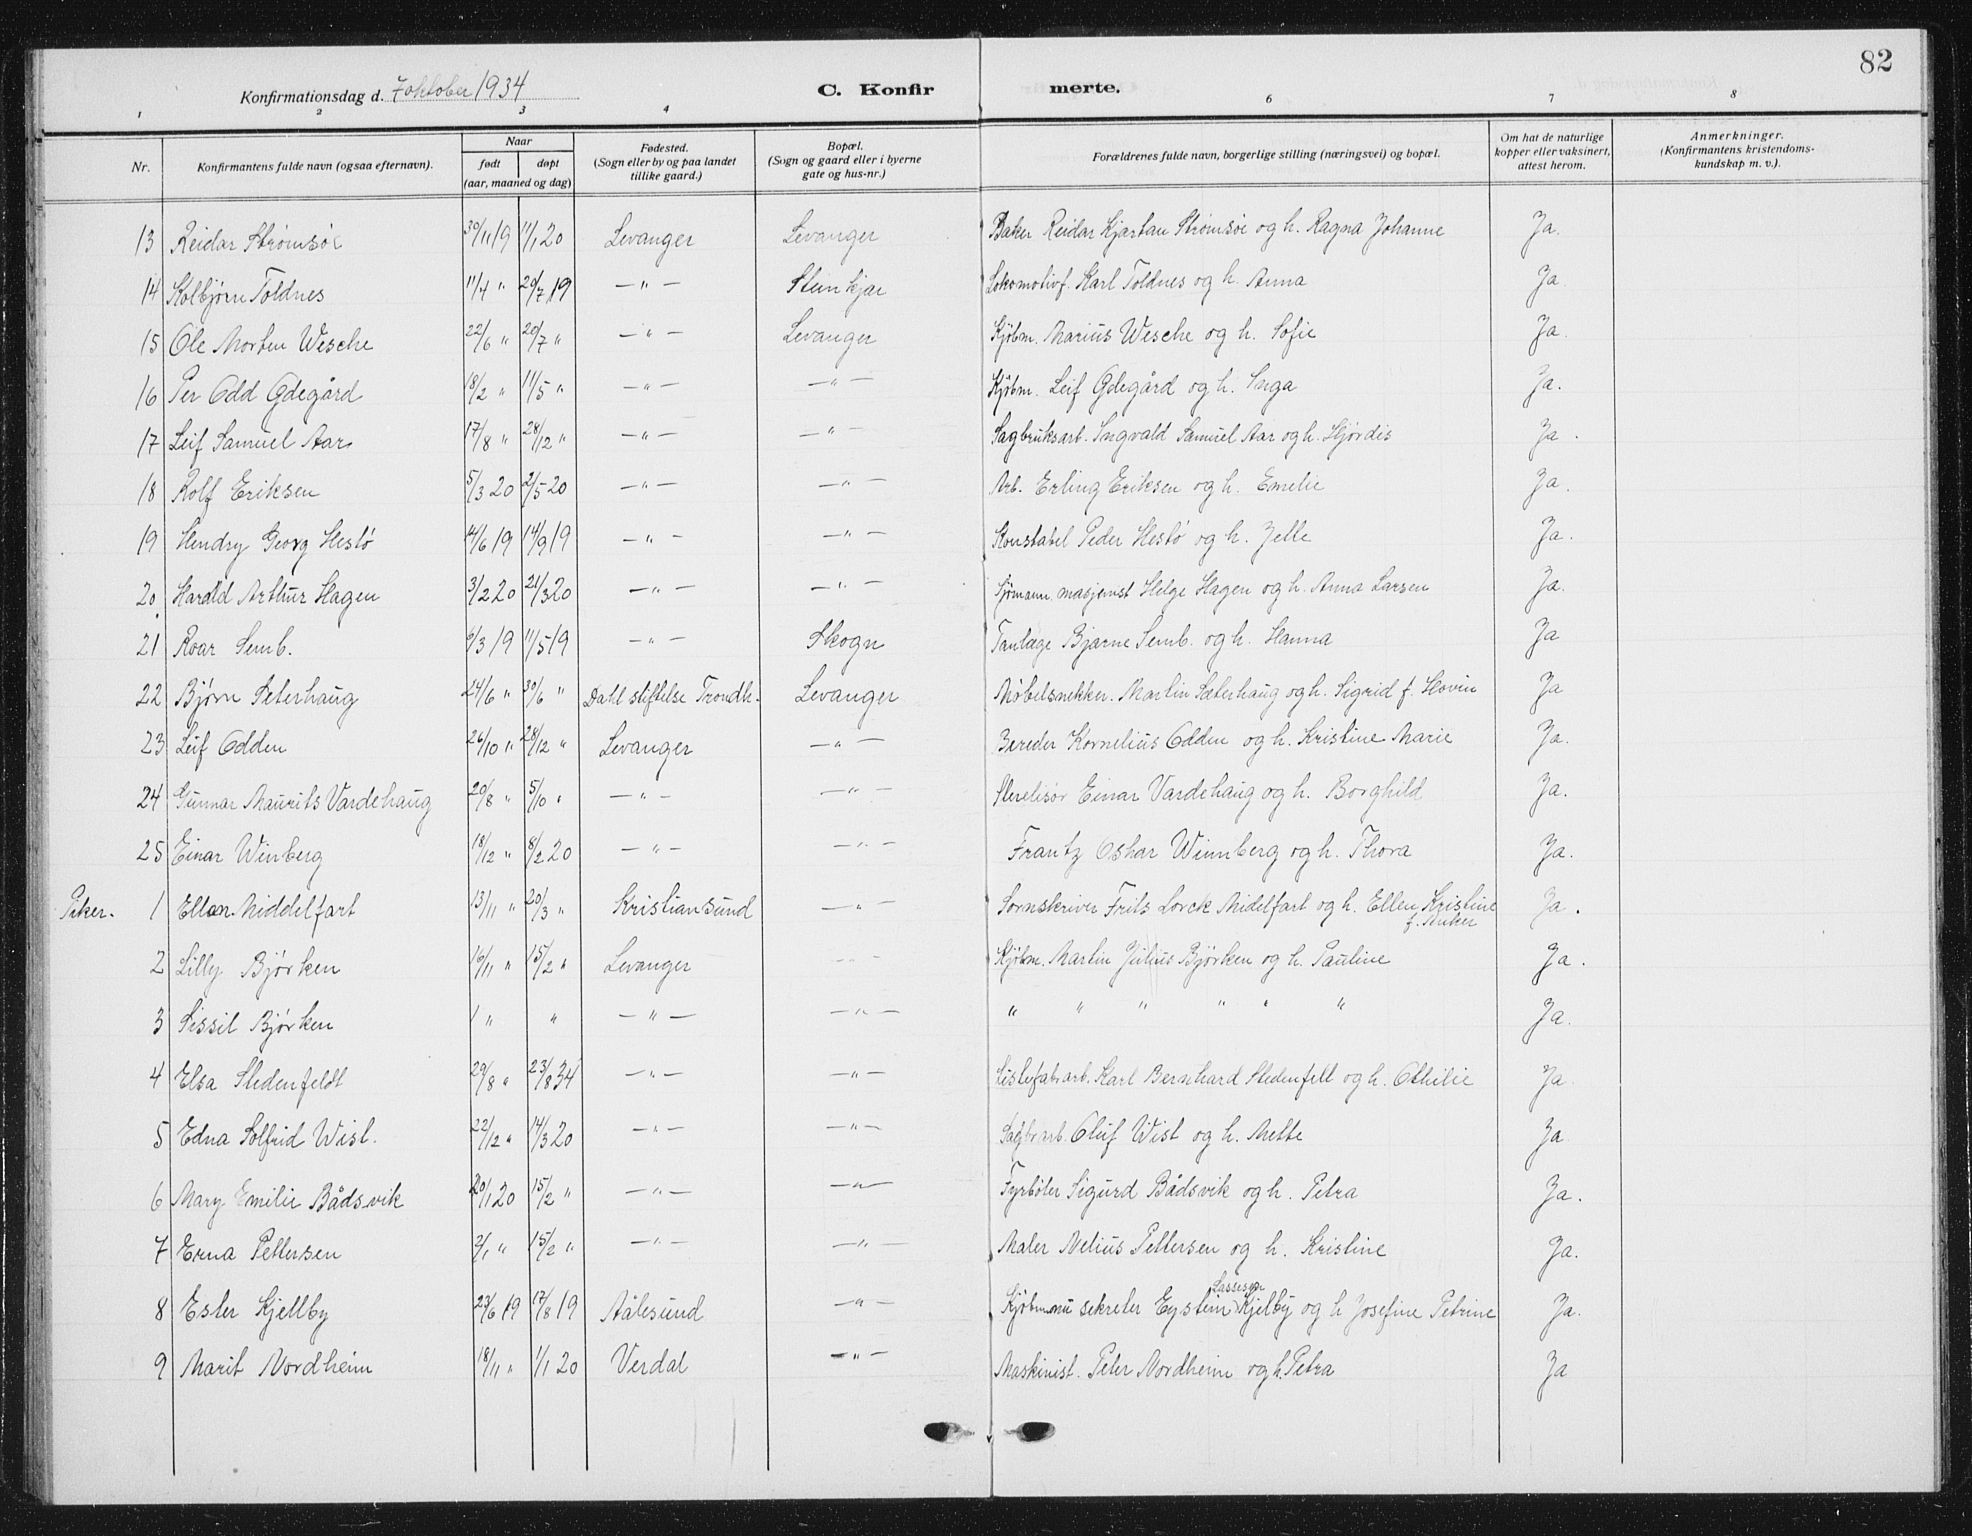 82
Konfirmationsdag d. 7 oktober 1934 C. Konfir merte.
1 2 3 4 6 7 8
Nr. Konfirmantens fulde navn (ogsaa efternavn). Naar født døpt (aar, maaned og dag) Fødested. (Sogn eller by og paa landet tillike gaard.) Bopæl. (Sogn og gaard eller i byerne gate og hus-nr.) Forældrenes fulde navn, borgerlige stilling (næringsvei) og bopæl. Om hat de naturlige kopper eller vaksinert, attest herom. Anmerkninger. (Konfirmantens kristendoms-kundskap m. v.).
13 Reidar Strømsøe 30/11 19 11/1 20 Levanger Levanger Baker Reidar Kjartan Strømsöe og h. Ragna Johanne Ja.
14 Kolbjørn Toldnes 11/4 " 20/7 19 — " — Steinkjær Lokomotivf. Karl Toldnes og h. Anna Ja.
15 Ole Morten Wesche 22/6 " 20/7 " — " — Levanger Kjøbm. Marius Wesche og h. Sofie Ja.
16 Per Odd Ødegård 18/2 " 11/5 " — " — — " — Kjøbm. Leif Ødegård og h. Inga Ja.
17 Leif Samuel Aar 17/8 " 28/12 " — " — — " — Sagbruksarb. Ingvald Samuel Aar og h. Hjørdis Ja.
18 Rolf Eriksen 5/3 20 2/5 20 — " — — " — Arb. Erling Eriksen og h. Emelie Ja.
19 Hendry Georg Hestø 14/6 19 14/9 19 — " — — " — Konstabel Peder Hestø og h. Jelle Ja.
20 Harald Arthur Hagen 3/2 20 21/3 20 — " — — " — Sjømann, masjenist Helge Hagen og h. Anna Larsen Ja.
21 Roar Semb. 6/3 19 11/5 19 — " — Skogn Tanlæge Bjarne Semb. og h. Hanna Ja
22 Bjørn Seterhaug 24/6 " 30/6 " Dahl stiftelse Trondh. Levanger Møbelsnekker. Martin Sæterhaug og h. Sigrid f. Hovin Ja
23 Leif Odden 26/10 " 28/12 " Levanger — " — Bereder Kornelius Odden og h. Kristine Marie Ja.
24 Gunnar Maurits Vardehaug 20/8 " 5/10 " — " — — " — Einar Vardehaug og h. Borghild Ja.
25 Einar Winberg 18/12 " 8/2 20 — " — — " — Frantz Oskar Winnberg og h. Thora Ja.
Piker. 1 Ellen Middelfart 13/11 " 20/3 " Kristiansund — " — Sorenskriver Frits Lorck Midelfart og h. Ellen Kristine Ja.
f. Anker
2 Lilly Bjørken 16/11 " 15/2 " Levanger — " — Kjøbm. Martin Julius Bjørken og h. Pauline Ja.
3 Sissil Bjørken 1 " " — " — — " — " " " " " " Ja.
4 Elsa Stedenfeldt 29/8 " 23/8 34 — " — — " — Karl Bernhard Stedenfelt og h. Othilie Ja
5 Edna Solfrid Wist. 22/12 " 14/3 20 — " — — " — Sagbr.arb. Oluf Wist og h. Mette Ja
6 Mary Emilie Bådsvik 20/1 20 15/2 " — " — — " — Fyrbøter Sigurd Bådsvik og h. Petra Ja.
7 Erna Pettersen 2/1 " 15/2 " — " — — " — Maler Nelius Pettersen og h. Kristine Ja.
8 Ester Kjellby 23/6 19 17/8 19 Aålesund — " — Kjøbm. nu sekretær Eystein Kjelby og h Josefine Petrine Ja.
9 Marit Nordheim 18/11 " 1/1 20 Verdal — " — Maskinist. Peter Nordheim og h. Petra Ja